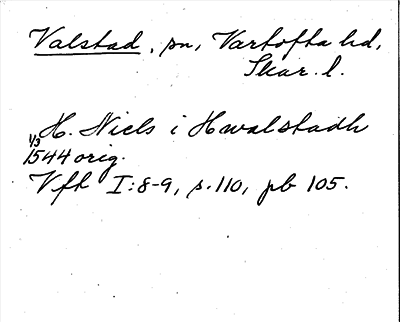 Valstad, sn, Vartofta hd,
Skar. l.
H. Niels i Hwalstadh
1/3
1544 orig.
Vfk I:8-9, s. 110, pb 105.